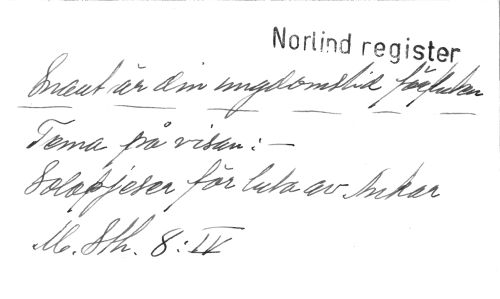 Norlind register
Snart är din ungdomstid förfluten
Tema på visan: —
Solopjeser för luta av
M. Sth. 8: IV